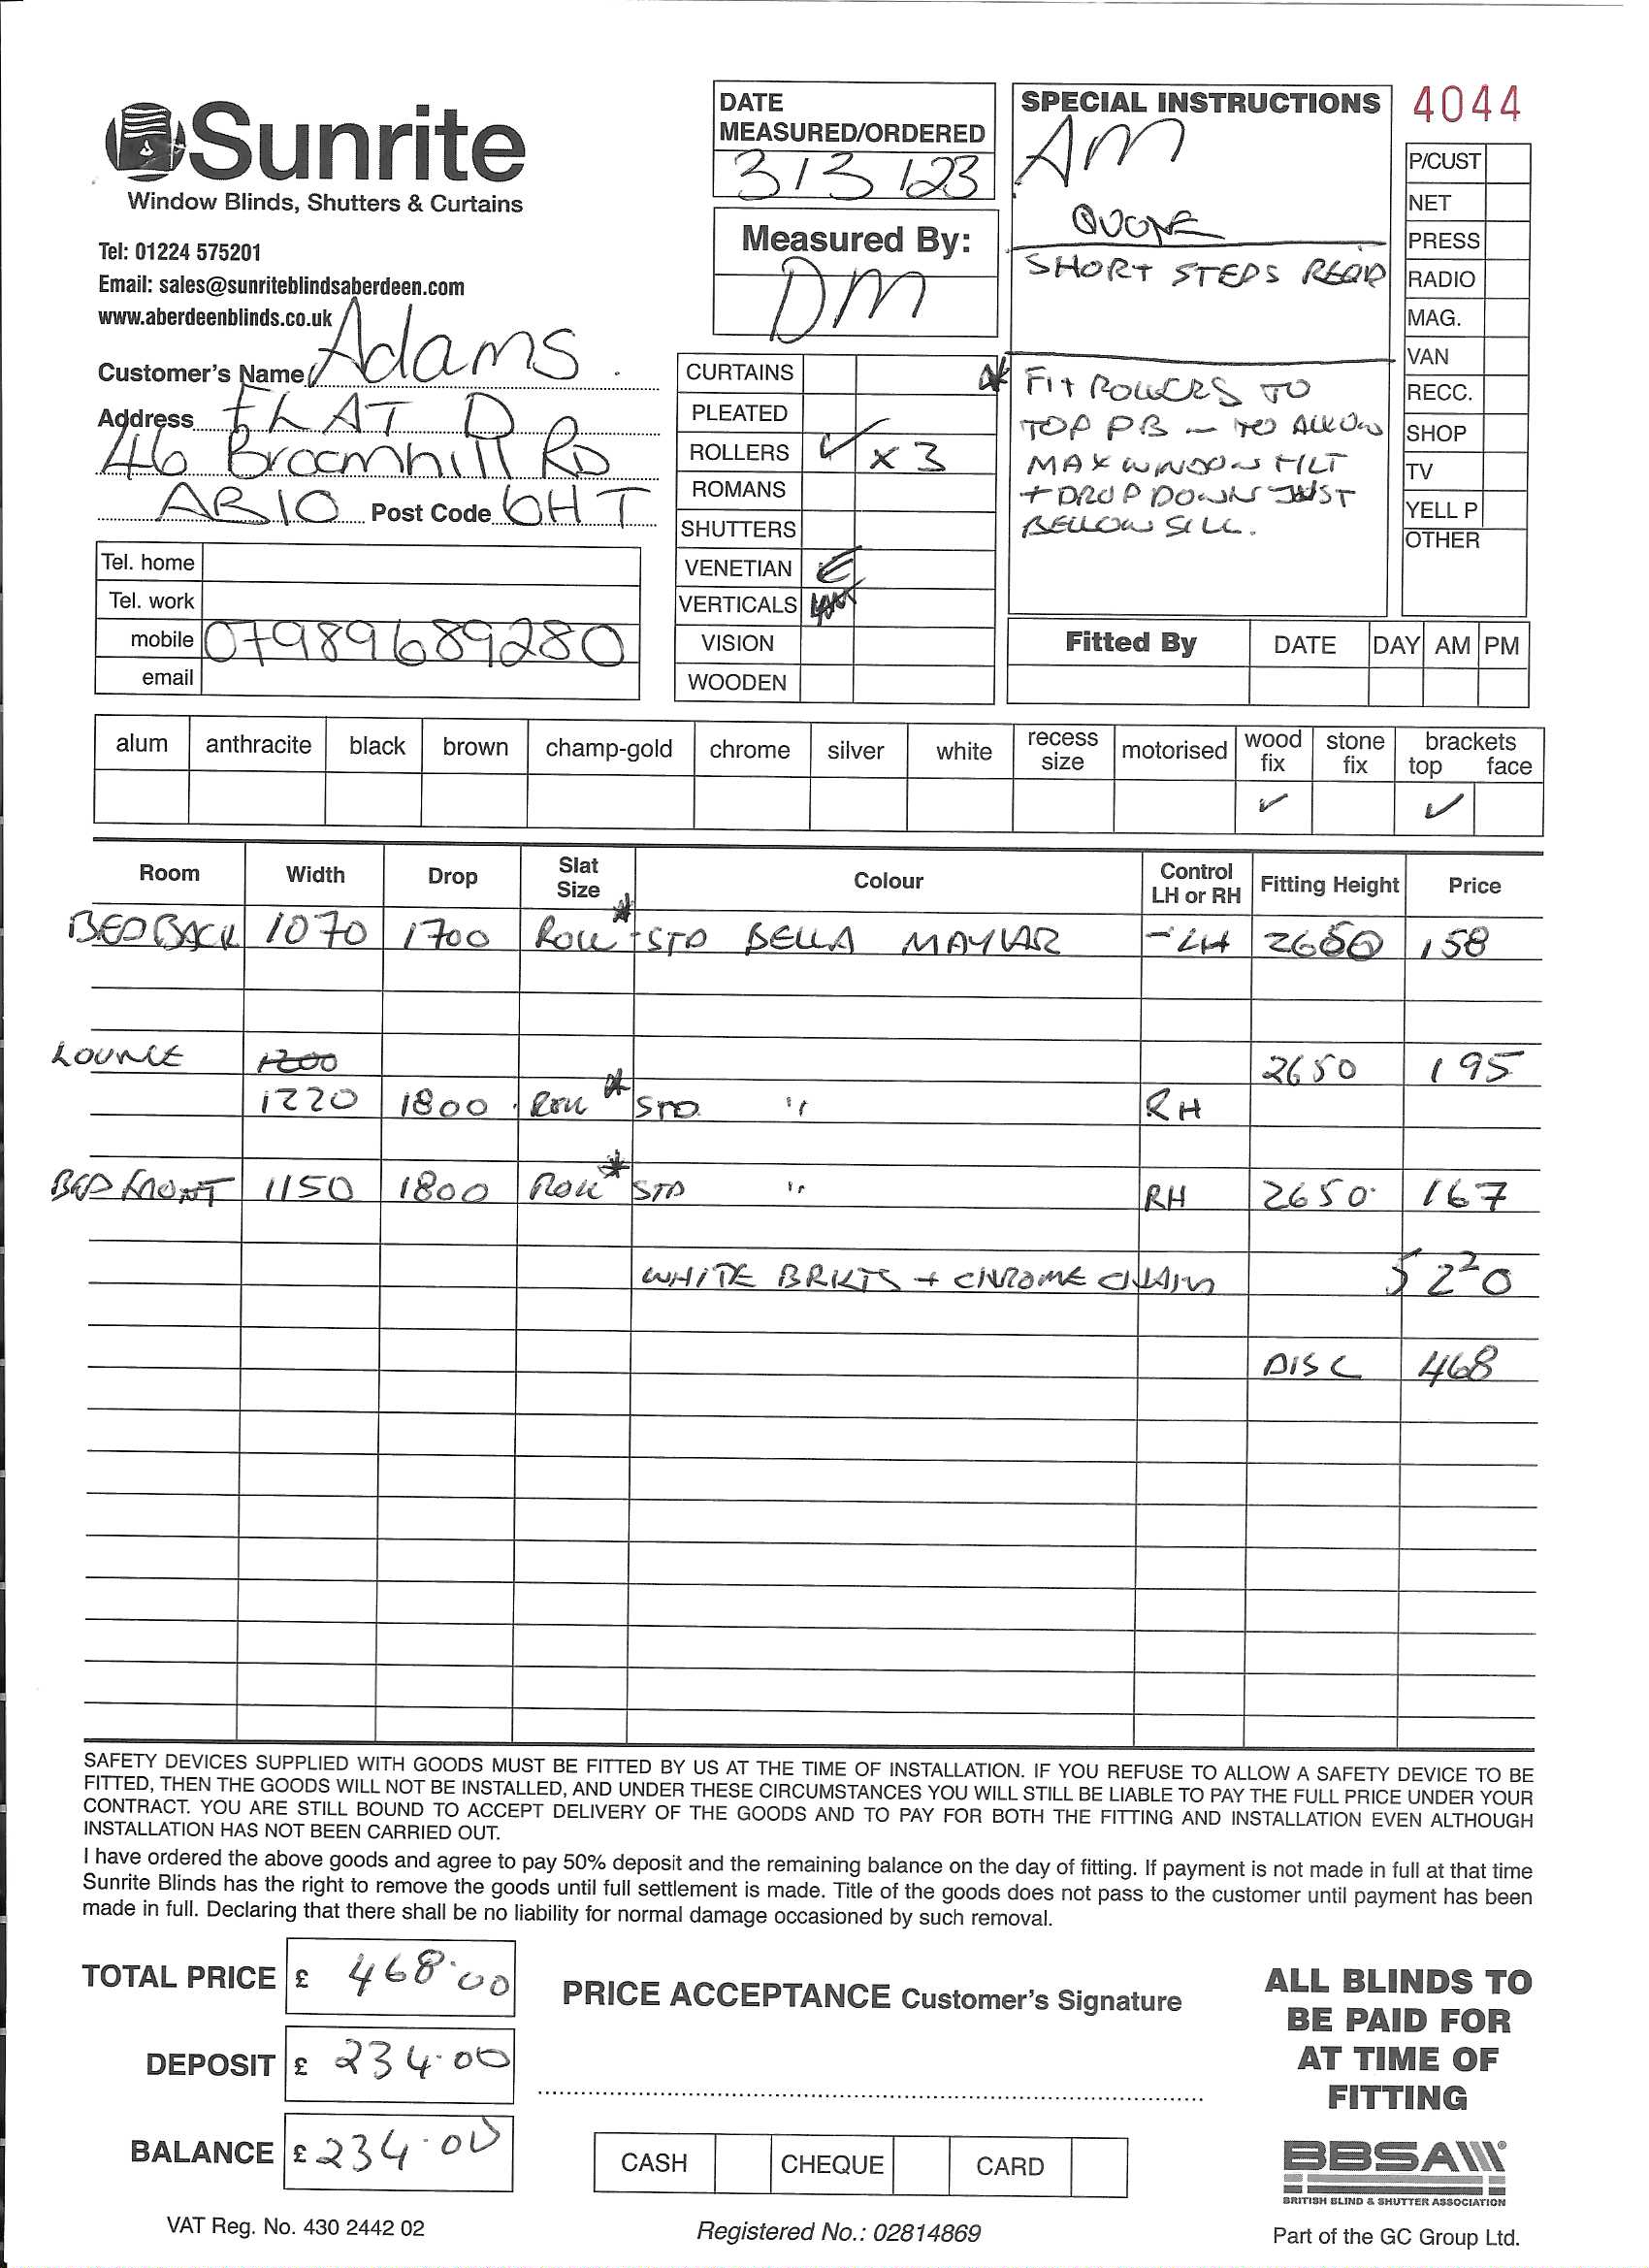 Sunrite
Window Blinds, Shutters & Curtains
Tel: 01224 575201
Email: sales@sunriteblindsaberdeen.com
www.aberdeenblinds.co.uk
Customer's Name Adams.
Address FLAT D
46 Broomhill RD
AB10 Post Code 6HT
Tel. home
Tel. work
mobile 07989689280
email
DATE
MEASURED/ORDERED
3/3/23
Measured By:
DM
CURTAINS
PLEATED
ROLLERS ✓ x3
ROMANS
SHUTTERS
VENETIAN
VERTICALS
VISION
WOODEN
SPECIAL INSTRUCTIONS
AM
SHORT STEPS REQD
* FIT ROLLERS TO
TOP PB - TO ALLOW
MAX WINDOW TILT
+ DROP DOWN JUST
BELLOW SILL.
4044
P/CUST
NET
PRESS
RADIO
MAG.
VAN
RECC.
SHOP
TV
YELL P
OTHER
Fitted By DATE DAY AM PM
alum anthracite black brown champ-gold chrome silver white recess size motorised wood fix stone fix brackets top face
✓ ✓
Room Width Drop Slat Size Colour Control LH or RH Fitting Height Price
BED BACK 1070 1700 ROLL * - STD BELLA - LH 2650 158
LOUNGE 1200 2650 195
1220 1800 ROLL * STD " RH
BED FRONT 1150 1800 ROLL * STD " RH 2650 167
WHITE BRKTS + CHROME CHAIN 520
DISC 468
SAFETY DEVICES SUPPLIED WITH GOODS MUST BE FITTED BY US AT THE TIME OF INSTALLATION. IF YOU REFUSE TO ALLOW A SAFETY DEVICE TO BE
FITTED, THEN THE GOODS WILL NOT BE INSTALLED, AND UNDER THESE CIRCUMSTANCES YOU WILL STILL BE LIABLE TO PAY THE FULL PRICE UNDER YOUR
CONTRACT. YOU ARE STILL BOUND TO ACCEPT DELIVERY OF THE GOODS AND TO PAY FOR BOTH THE FITTING AND INSTALLATION EVEN ALTHOUGH
INSTALLATION HAS NOT BEEN CARRIED OUT.
I have ordered the above goods and agree to pay 50% deposit and the remaining balance on the day of fitting. If payment is not made in full at that time
Sunrite Blinds has the right to remove the goods until full settlement is made. Title of the goods does not pass to the customer until payment has been
made in full. Declaring that there shall be no liability for normal damage occasioned by such removal.
TOTAL PRICE £ 468.00
DEPOSIT £ 234.00
BALANCE £ 234.00
PRICE ACCEPTANCE Customer's Signature
CASH CHEQUE CARD
ALL BLINDS TO
BE PAID FOR
AT TIME OF
FITTING
BBSA
BRITISH BLIND & SHUTTER ASSOCIATION
VAT Reg. No. 430 2442 02
Registered No.: 02814869
Part of the GC Group Ltd.